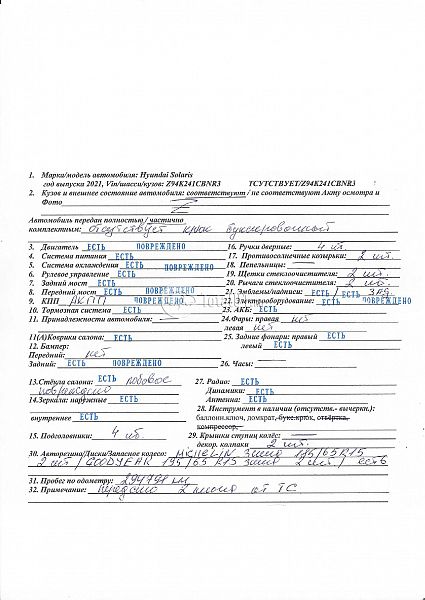 1. Марка/модель автомобиля: Hyundai Solaris
год выпуска 2021, Vin/шасси/кузов: Z94K241CBNR3 ТСУТСТВУЕТ/Z94K241CBNR3
2. Кузов и внешнее состояние автомобиля: соответствуют / не соответствуют Акту осмотра и
Фото
Автомобиль передан полностью / частично
комплектным: отсутствует крюк буксировочный
3. Двигатель ЕСТЬ ПОВРЕЖДЕНО 16. Ручки дверные: 4 шт.
4. Система питания ЕСТЬ 17. Противосолнечные козырьки: 2 шт.
5. Система охлаждения ЕСТЬ ПОВРЕЖДЕНО 18. Пепельницы:
6. Рулевое управление ЕСТЬ 19. Щетки стеклоочистителя: 2 шт.
7. Задний мост ЕСТЬ 20. Рычаги стеклоочистителя: 2 шт.
8. Передний мост ЕСТЬ ПОВРЕЖДЕНО 21. Эмблемы/надписи: ЕСТЬ / ЕСТЬ зад.
9. КПП АКПП 22. Электрооборудование: ЕСТЬ ПОВРЕЖДЕНО
10. Тормозная система ЕСТЬ 23. АКБ: ЕСТЬ
11. Принадлежности автомобиля: 24. Фары: правая нет
левая нет
11(А)Коврики салона: ЕСТЬ 25. Задние фонари: правый ЕСТЬ
12. Бампер: левый ЕСТЬ
Передний: нет
Задний: ЕСТЬ ПОВРЕЖДЕНО 26. Часы:
13.Стёкла салона: ЕСТЬ лобовое 27. Радио: ЕСТЬ
повреждено Динамики: ЕСТЬ
14.Зеркала: наружные ЕСТЬ Антенна: ЕСТЬ
28. Инструмент в наличии (отсутств.- вычеркн.):
внутреннее ЕСТЬ баллонн.ключ, домкрат, букс.крюк, отвёртка,
компрессор,
15. Подголовники: 4 шт. 29. Крышки ступиц колёс:
декор. колпаки 2 шт.
30. Авторезина/Диски/Запасное колесо: MICHELIN Зима 195/65R15
2 шт / GOODYEAR 195/65 R15 Зима 2 шт. / есть
31. Пробег по одометру: 294791 км
32. Примечание: передано 2 ключа от ТС